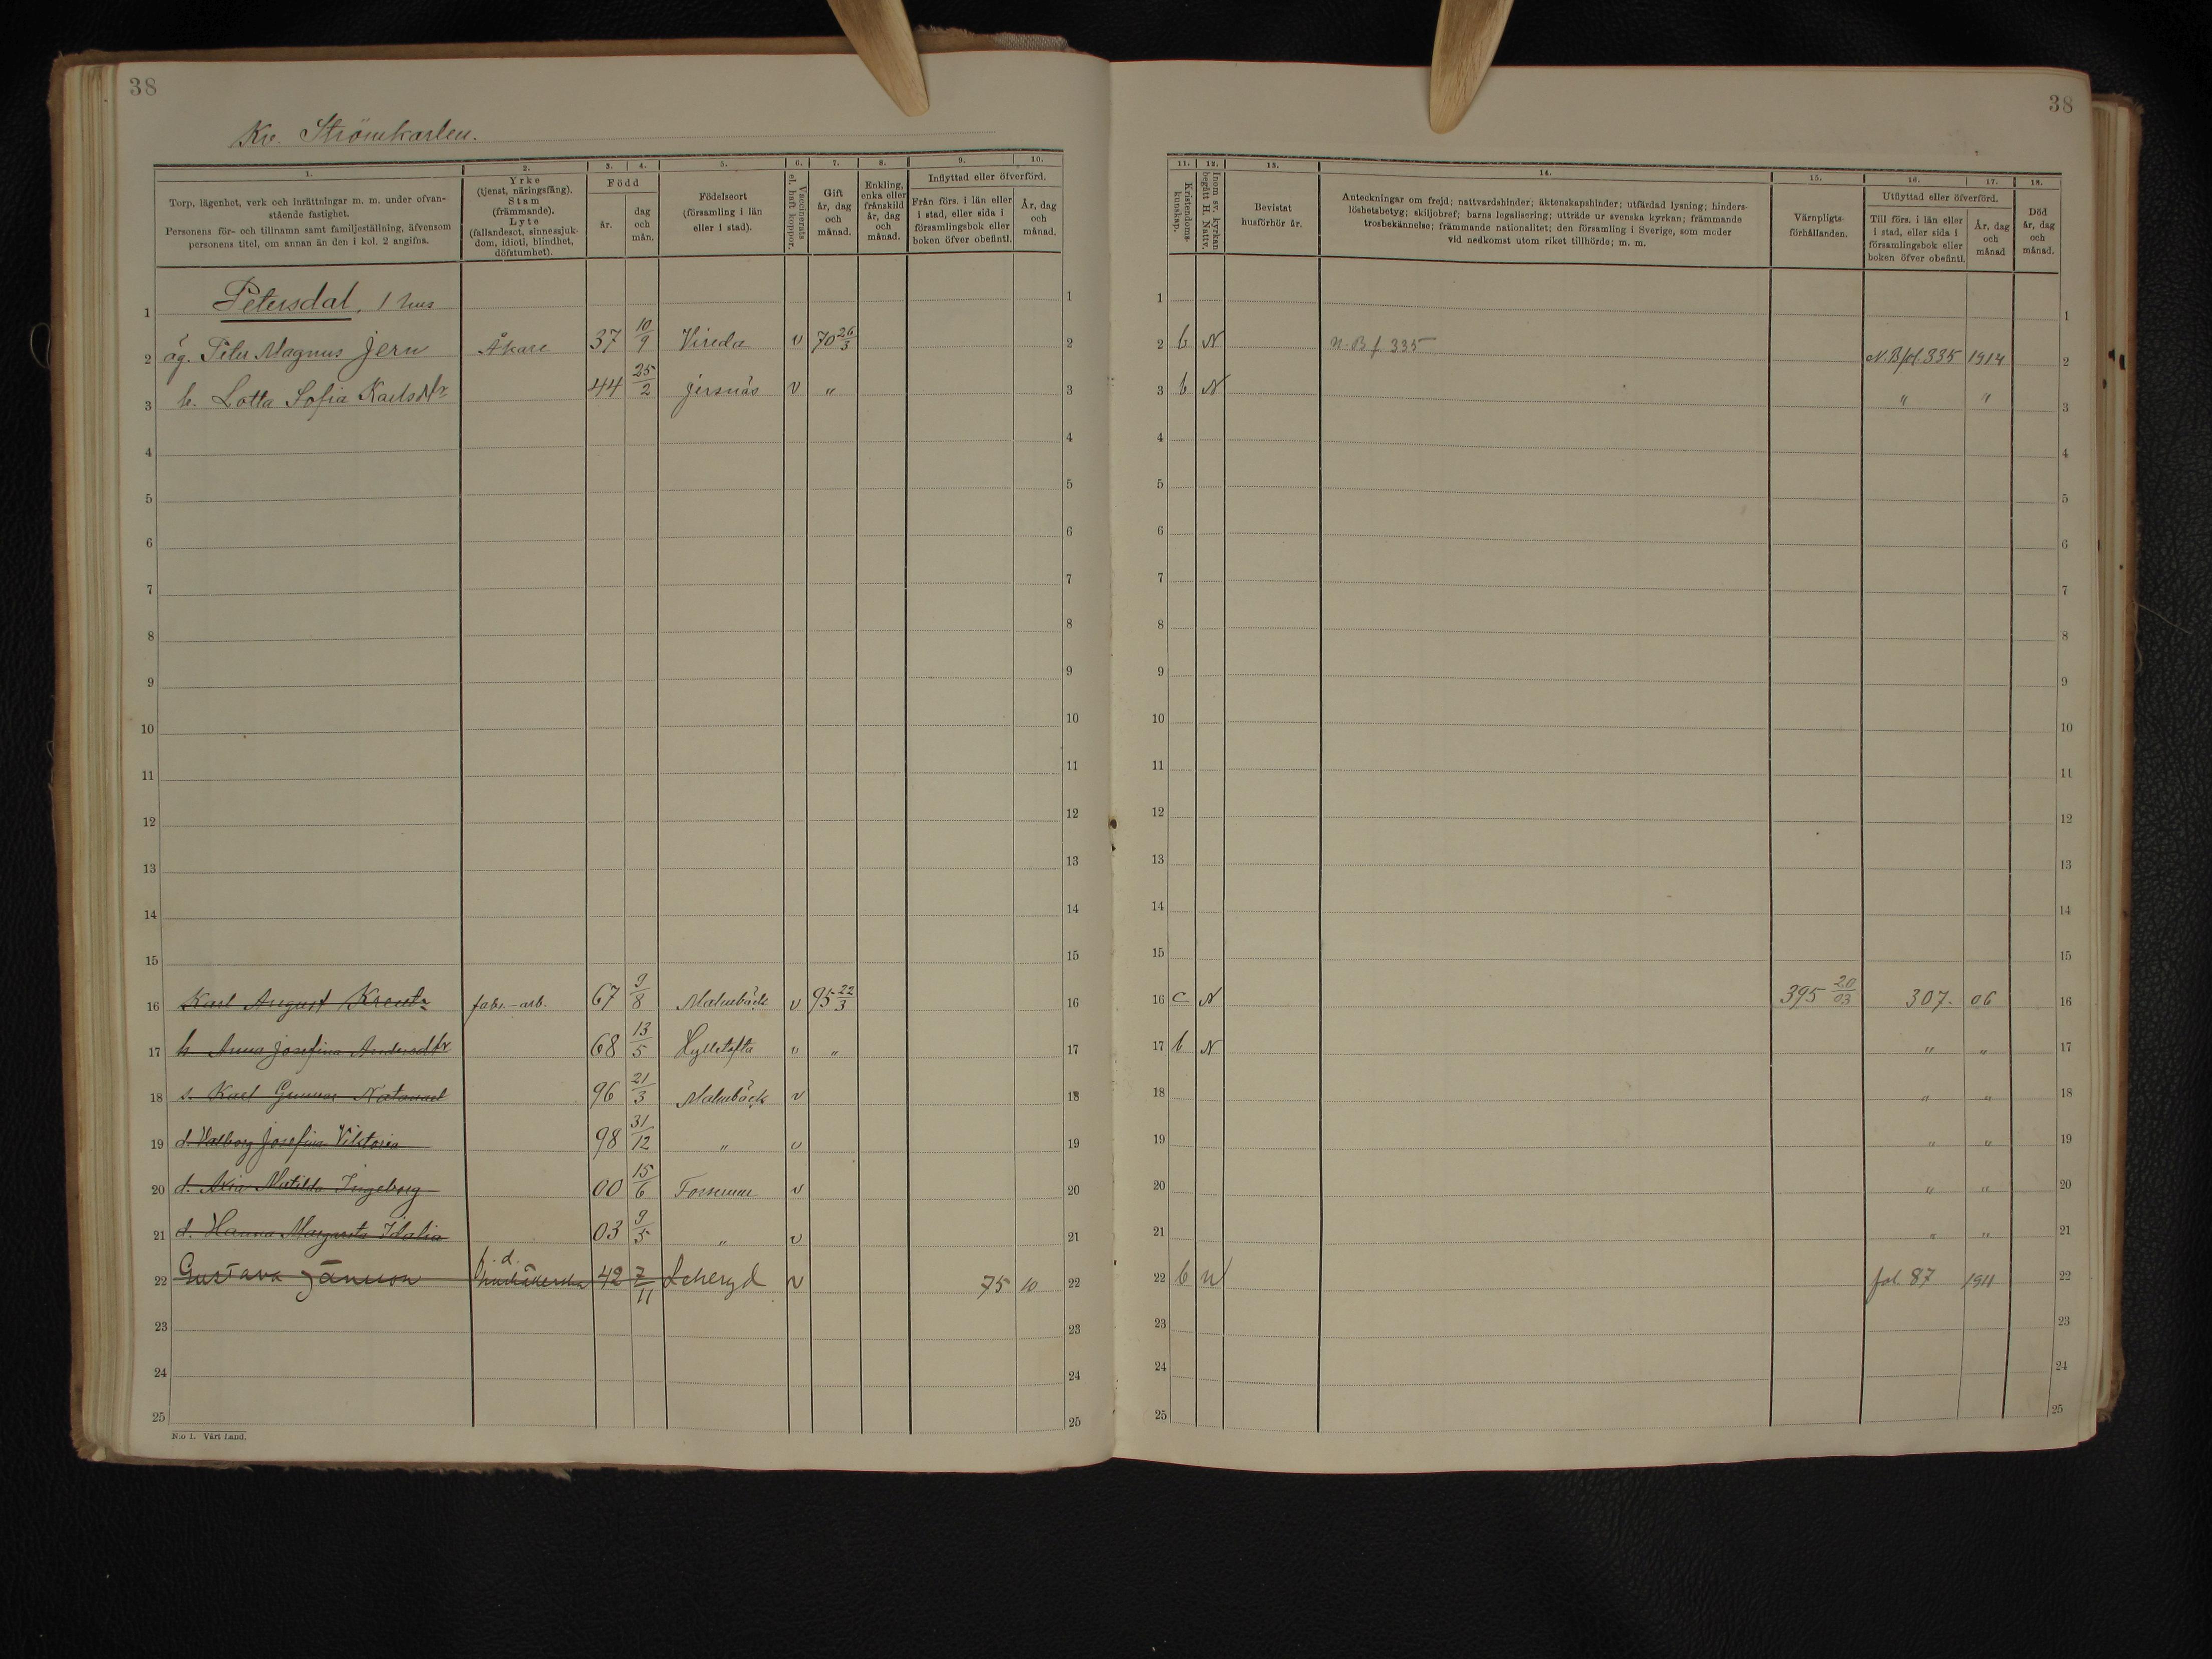 38
38
Kv. Strömkarlen.
1.
2.
3.
4.
5.
6.
7.
8.
9.
10.
Torp, lägenhet, verk och inrättningar m. m. under ofvan-
stående fastighet.
Personens för- och tillnamn samt familjeställning, äfvensom
personens titel, om annan än den i kol. 2 angifna.
Yrke
(tjenst, näringsfång).
Stam
(främmande).
Lyte
(fallandesot, sinnessjuk-
dom, idioti, blindhet,
döfstumhet).
Född
år.
dag
och
mån.
Födelseort
(församling i län
eller i stad).
Vaccinerats
el. haft koppor.
Gift
år, dag
och
månad.
Enkling,
enka eller
frånskild
år, dag
och
månad.
Inflyttad eller öfverförd.
Från förs. i län eller
i stad, eller sida i
församlingsbok eller
boken öfver obefintl.
År, dag
och
månad.
1 Petersdal, 1 hus 1
2 äg. Peter Magnus Jern Åkare 37 10/9 Vireda v 70 26/3 2
3 h. Lotta Sofia Karlsdtr 44 25/2 Jersnäs v " 3
4 4
5 5
6 6
7 7
8 8
9 9
10 10
11 11
12 12
13 13
14 14
15 15
16 Karl August Kreutz fabr.-arb. 67 9/8 Malmbäck v 95 22/3 16
17 h. Anna Josefina Andersdtr 68 13/5 Hylletofta " " 17
18 s. Karl Gunnar Natanael 96 21/3 Malmbäck v 18
19 d. Valborg Josefina Viktoria 98 31/12 " v 19
20 d. Matilda Ingeborg 00 15/6 Forserum v 20
21 d. Hanna Margareta Idalia 03 9/5 " v 21
22 Gustava Jönsson f. d. 42 7/11 Lekeryd v 75 10 22
23 23
24 24
25 25
N:o 1. Vårt Land.
11.
12.
13.
14.
15.
16.
17.
18.
Kristendoms-
kunskap.
Inom sv. kyrkan
begått H. Nattv.
Bevistat
husförhör år.
Anteckningar om frejd; nattvardshinder; äktenskapshinder; utfärdad lysning; hinders-
löshetsbetyg; skiljobref; barns legalisering; utträde ur svenska kyrkan; främmande
trosbekännelse; främmande nationalitet; den församling i Sverige, som moder
vid nedkomst utom riket tillhörde; m. m.
Värnpligts-
förhållanden.
Utflyttad eller öfverförd.
Till förs. i län eller
i stad, eller sida i
församlingsbok eller
boken öfver obefintl.
År, dag
och
månad
Död
år, dag
och
månad.
1 1
2 b N N. B f. 335 N. B fol. 335 1914 2
3 b N " " 3
4 4
5 5
6 6
7 7
8 8
9 9
10 10
11 11
12 12
13 13
14 14
15 15
16 c N 395 20/03 307. 06 16
17 b N " " 17
18 " " 18
19 " " 19
20 " " 20
21 " " 21
22 b N fol. 87 1911 22
23 23
24 24
25 25